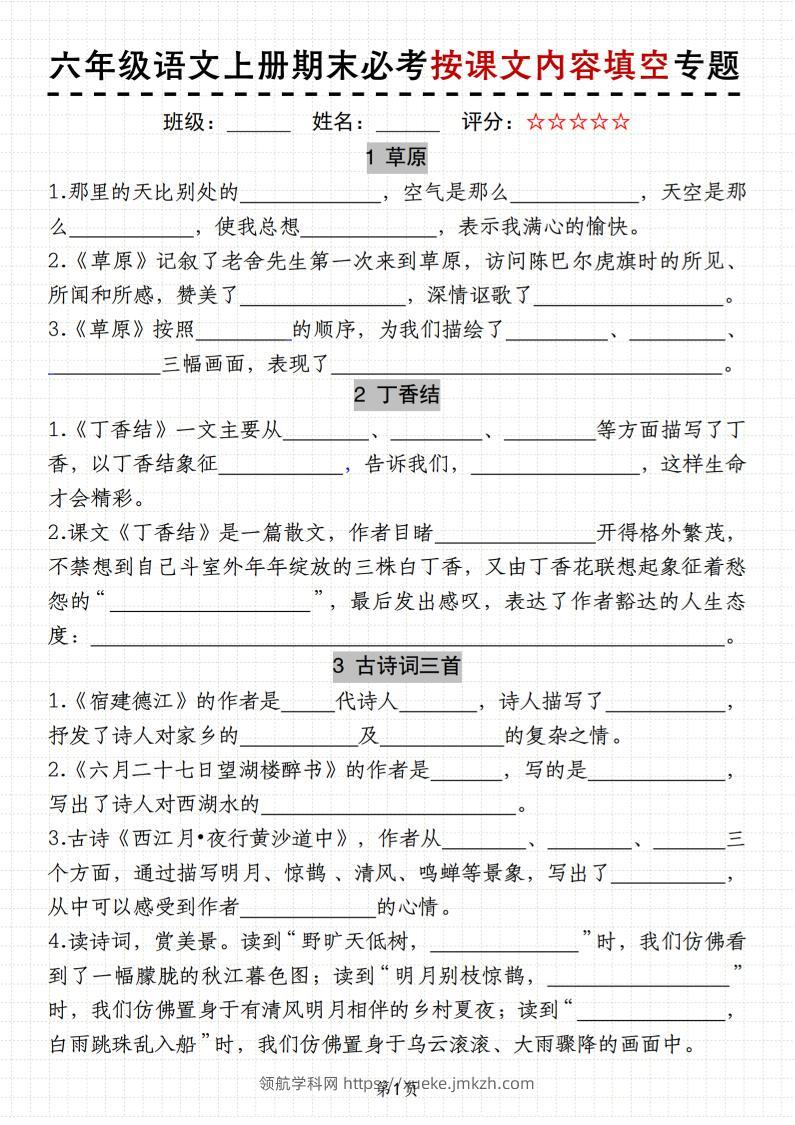 六年级语文上册期末必考按课文内容填空专题
班级：______ 姓名：______ 评分：☆☆☆☆☆
1 草原
1.那里的天比别处的____________，空气是那么____________，天空是那
么____________，使我总想____________，表示我满心的愉快。
2.《草原》记叙了老舍先生第一次来到草原，访问陈巴尔虎旗时的所见、
所闻和所感，赞美了______________，深情讴歌了________________。
3.《草原》按照________的顺序，为我们描绘了_________、________、
__________三幅画面，表现了__________________________________。
2 丁香结
1.《丁香结》一文主要从________、________、________等方面描写了丁
香，以丁香结象征___________，告诉我们，_______________，这样生命
才会精彩。
2.课文《丁香结》是一篇散文，作者目睹______________开得格外繁茂，
不禁想到自己斗室外年年绽放的三株白丁香，又由丁香花联想起象征着愁
怨的“__________________”，最后发出感叹，表达了作者豁达的人生态
度：________________________________________________________。
3 古诗词三首
1.《宿建德江》的作者是_____代诗人_______，诗人描写了__________，
抒发了诗人对家乡的__________及___________的复杂之情。
2.《六月二十七日望湖楼醉书》的作者是______，写的是____________，
写出了诗人对西湖水的______________________。
3.古诗《西江月•夜行黄沙道中》，作者从_______、_______、______三
个方面，通过描写明月、惊鹊 、清风、鸣蝉等景象，写出了__________，
从中可以感受到作者____________的心情。
4.读诗词，赏美景。读到“野旷天低树，_____________”时，我们仿佛看
到了一幅朦胧的秋江暮色图；读到“明月别枝惊鹊，________________”
时，我们仿佛置身于有清风明月相伴的乡村夏夜；读到“_____________，
白雨跳珠乱入船”时，我们仿佛置身于乌云滚滚、大雨骤降的画面中。
领航学科网 https://xueke.jmkzh.com
第1页